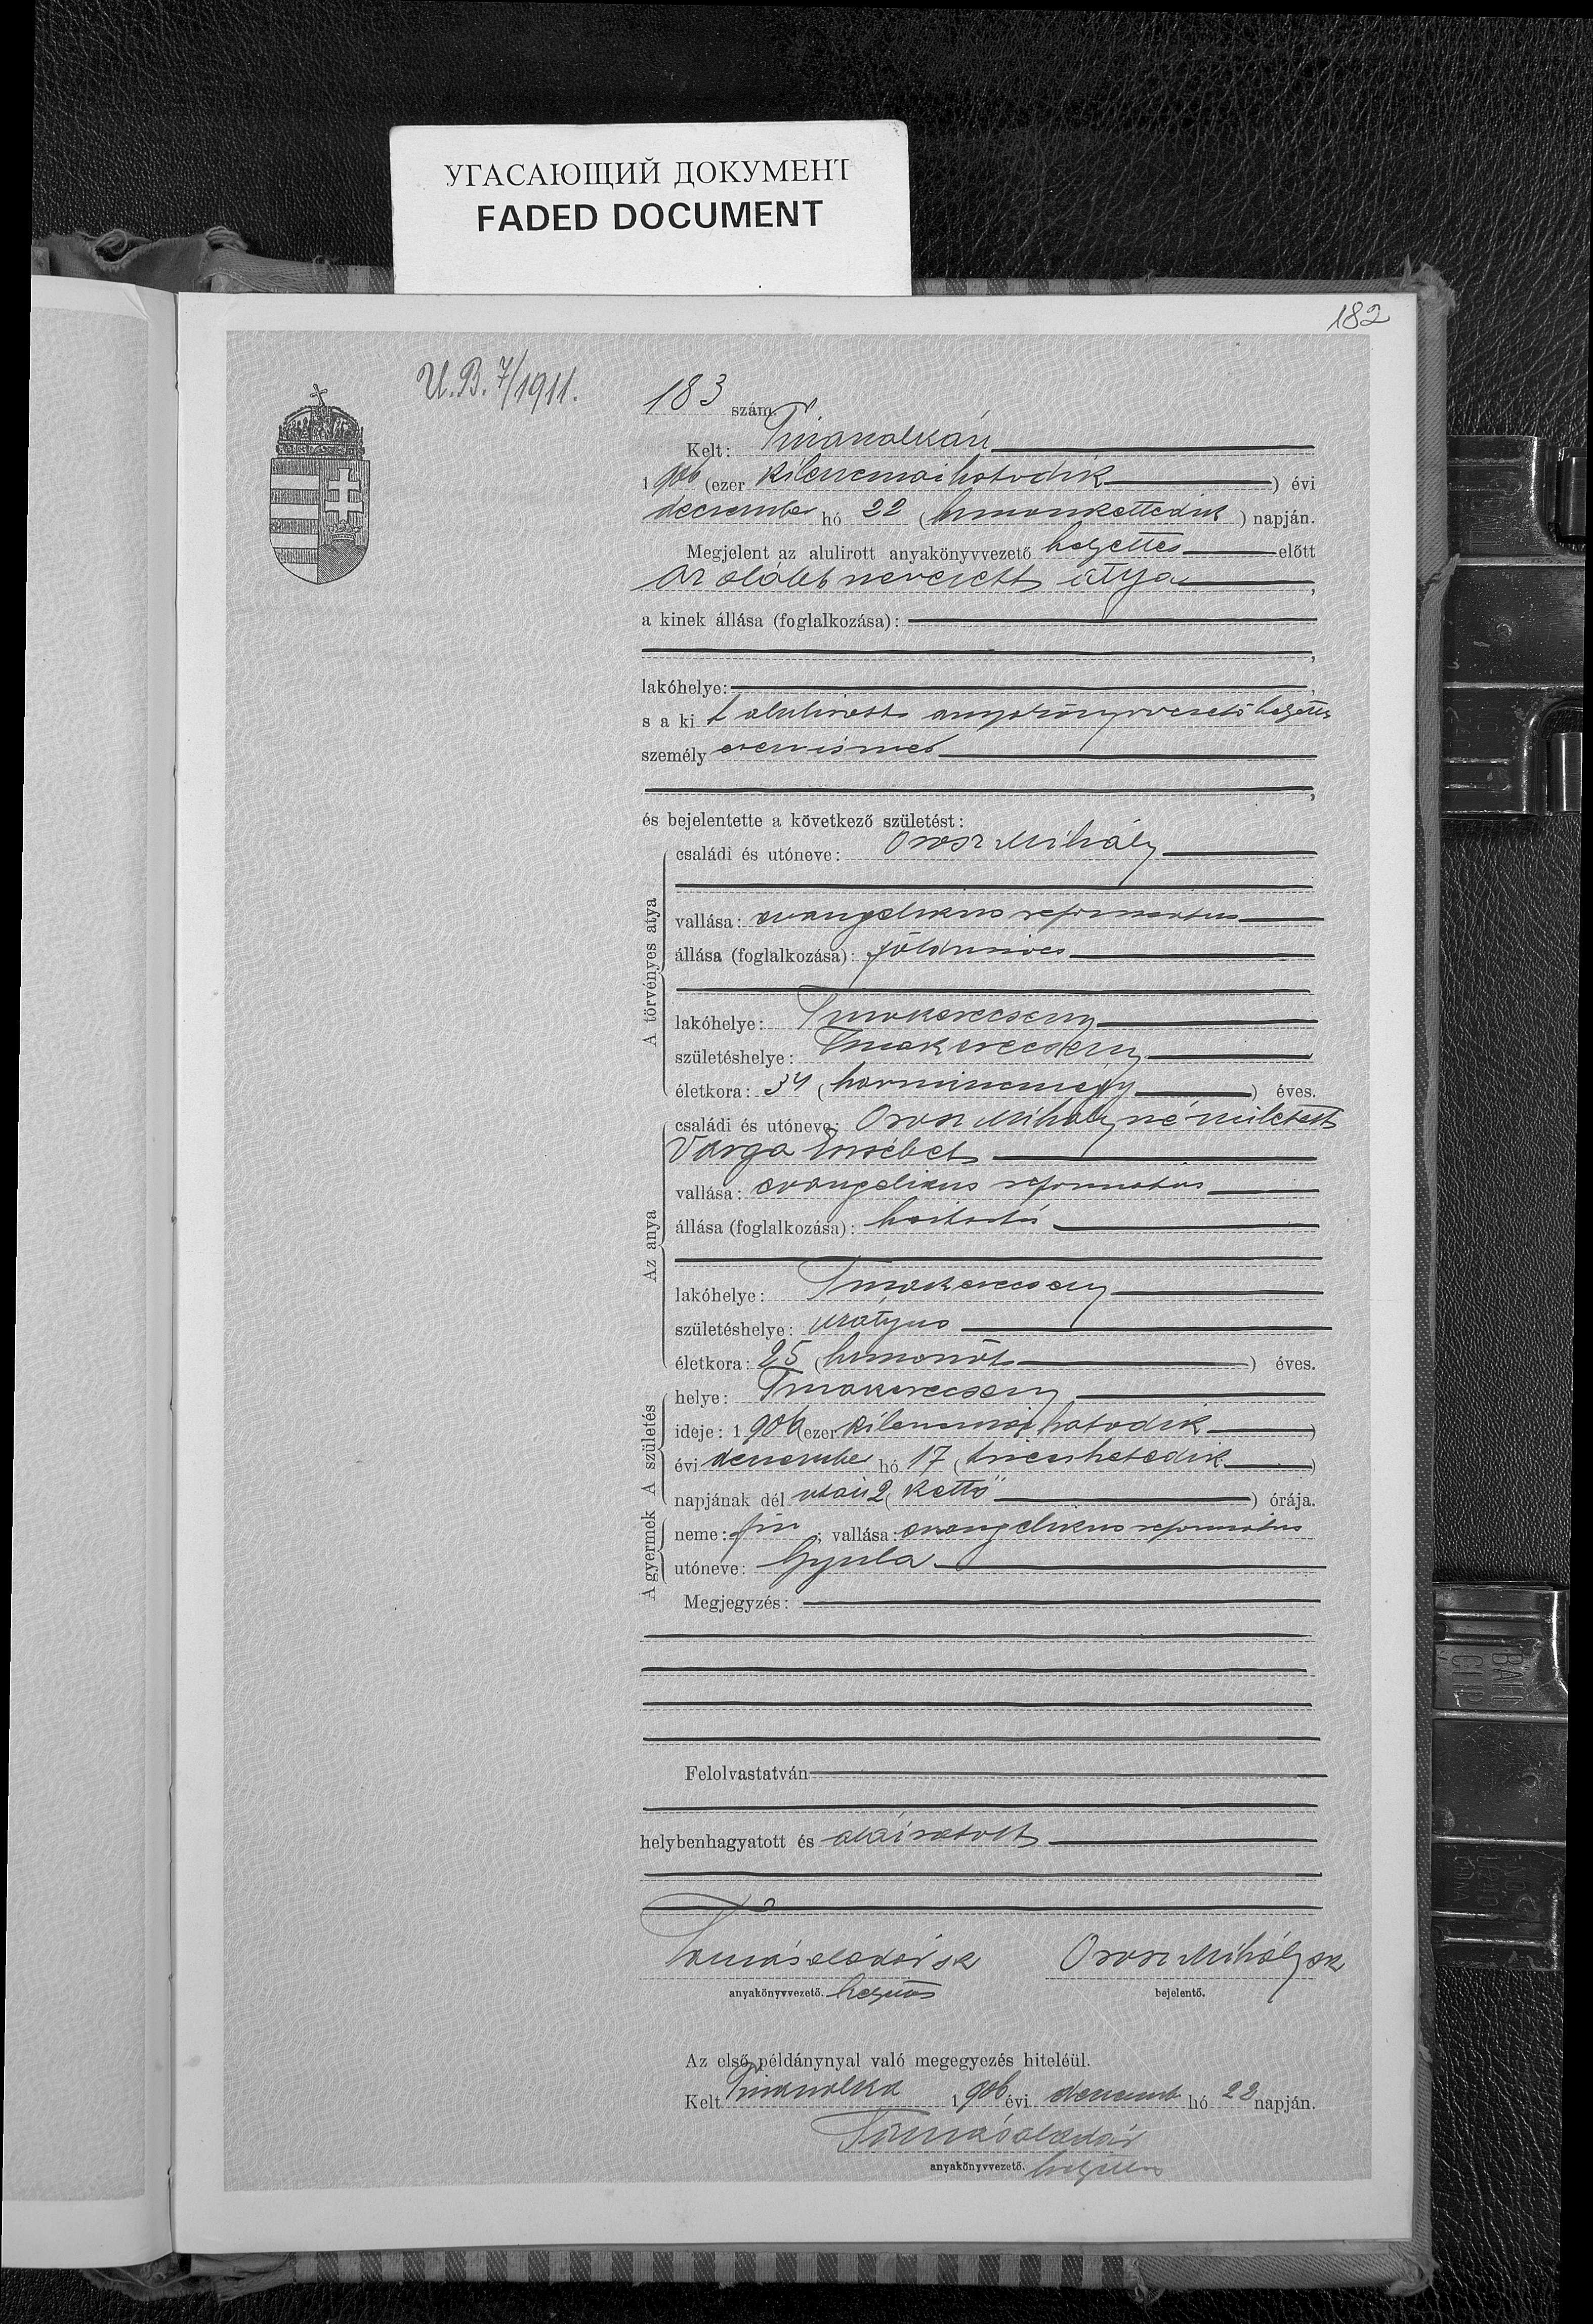 УГАСАЮЩИЙ ДОКУМЕНТ
FADED DOCUMENT
182
U.B. 7/1911.
183 szám.
Kelt: Tiszasalkán
1906 (ezer kilencszázhatodik) évi
december hó 22 (huszonkettedik) napján.
Megjelent az alulirott anyakönyvvezető helyettes előtt
az alább nevezett atya,
a kinek állása (foglalkozása):
lakóhelye:
s a ki t alulirott anyakönyvvezető helyettes
személyesen ismer
és bejelentette a következő születést:
A törvényes atya
családi és utóneve: Orosz Mihály
vallása: evangelikus reformatus
állása (foglalkozása): földmives
lakóhelye: Tiszakerecseny
születéshelye: Tiszakerecseny
életkora: 34 (harmincnégy) éves.
Az anya
családi és utóneve: Orosz Mihályné született
Varga Erzsébet
vallása: evangelikus reformatus
állása (foglalkozása): háztartás
lakóhelye: Tiszakerecseny
születéshelye: Mátyus
életkora: 25 (huszonöt) éves.
A születés
helye: Tiszakerecseny
ideje: 1906 (ezer kilencszáz hatodik)
évi december hó 17 (tizenhetedik)
napjának dél után 2 (kettő) órája.
A gyermek
neme: fiu; vallása: evangelikus reformatus
utóneve: Gyula
Megjegyzés:
Felolvastatván
helybenhagyatott és aláiratott
Tamás Aladár sk Orosz Mihály sk
anyakönyvvezető. helyettes bejelentő.
Az első példánynyal való megegyezés hiteléül.
Kelt 1906 évi decemb. hó 22 napján.
Tamás Aladár
anyakönyvvezető. helyettes